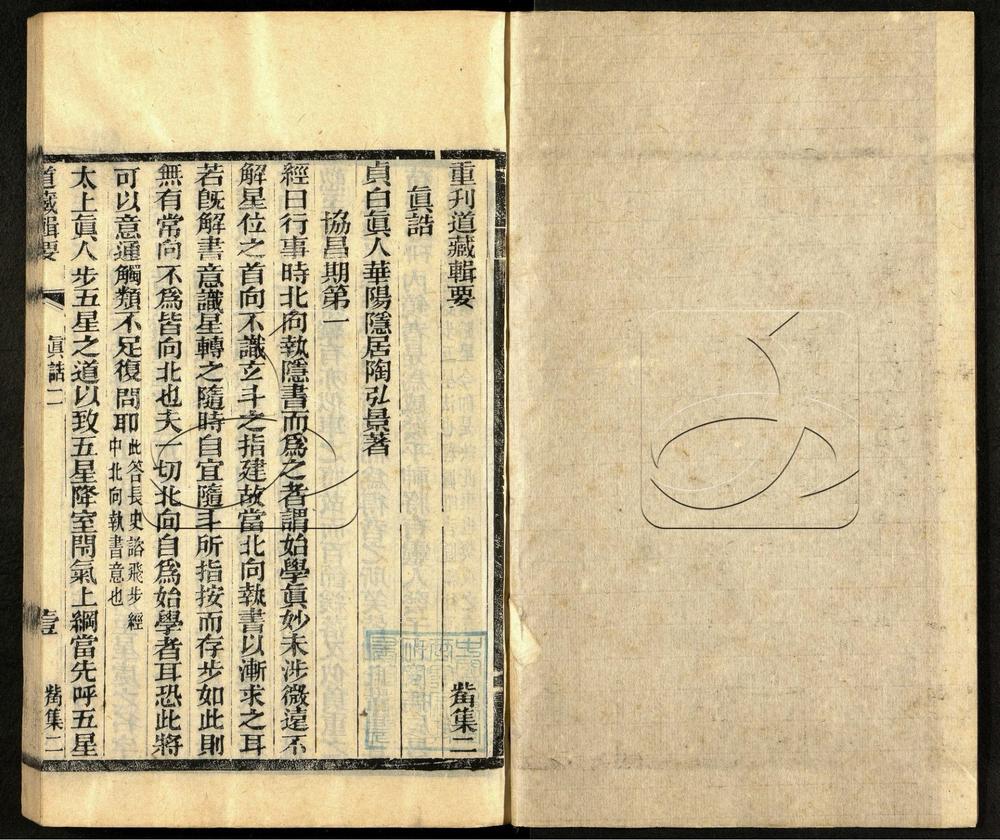 重刋道藏輯要　觜集二
眞誥
貞白眞人華陽隱居陶弘景著
協昌期第一
經曰行事時北向執隱書而爲之者謂始學眞妙未涉微遠不
解星位之首向不識立斗之指建故當北向執書以漸求之耳
若旣解書意識星轉之隨時自宜隨斗所指按而存步如此則
無有常向不爲皆向北也夫一切北向自爲始學者耳恐此將
可以意通觸類不足復問耶此答長史諮飛步經
中北向執書意也
太上眞人步五星之道以致五星降室閇氣上綱當先呼五星
道藏輯要　眞誥二　壹　觜集二